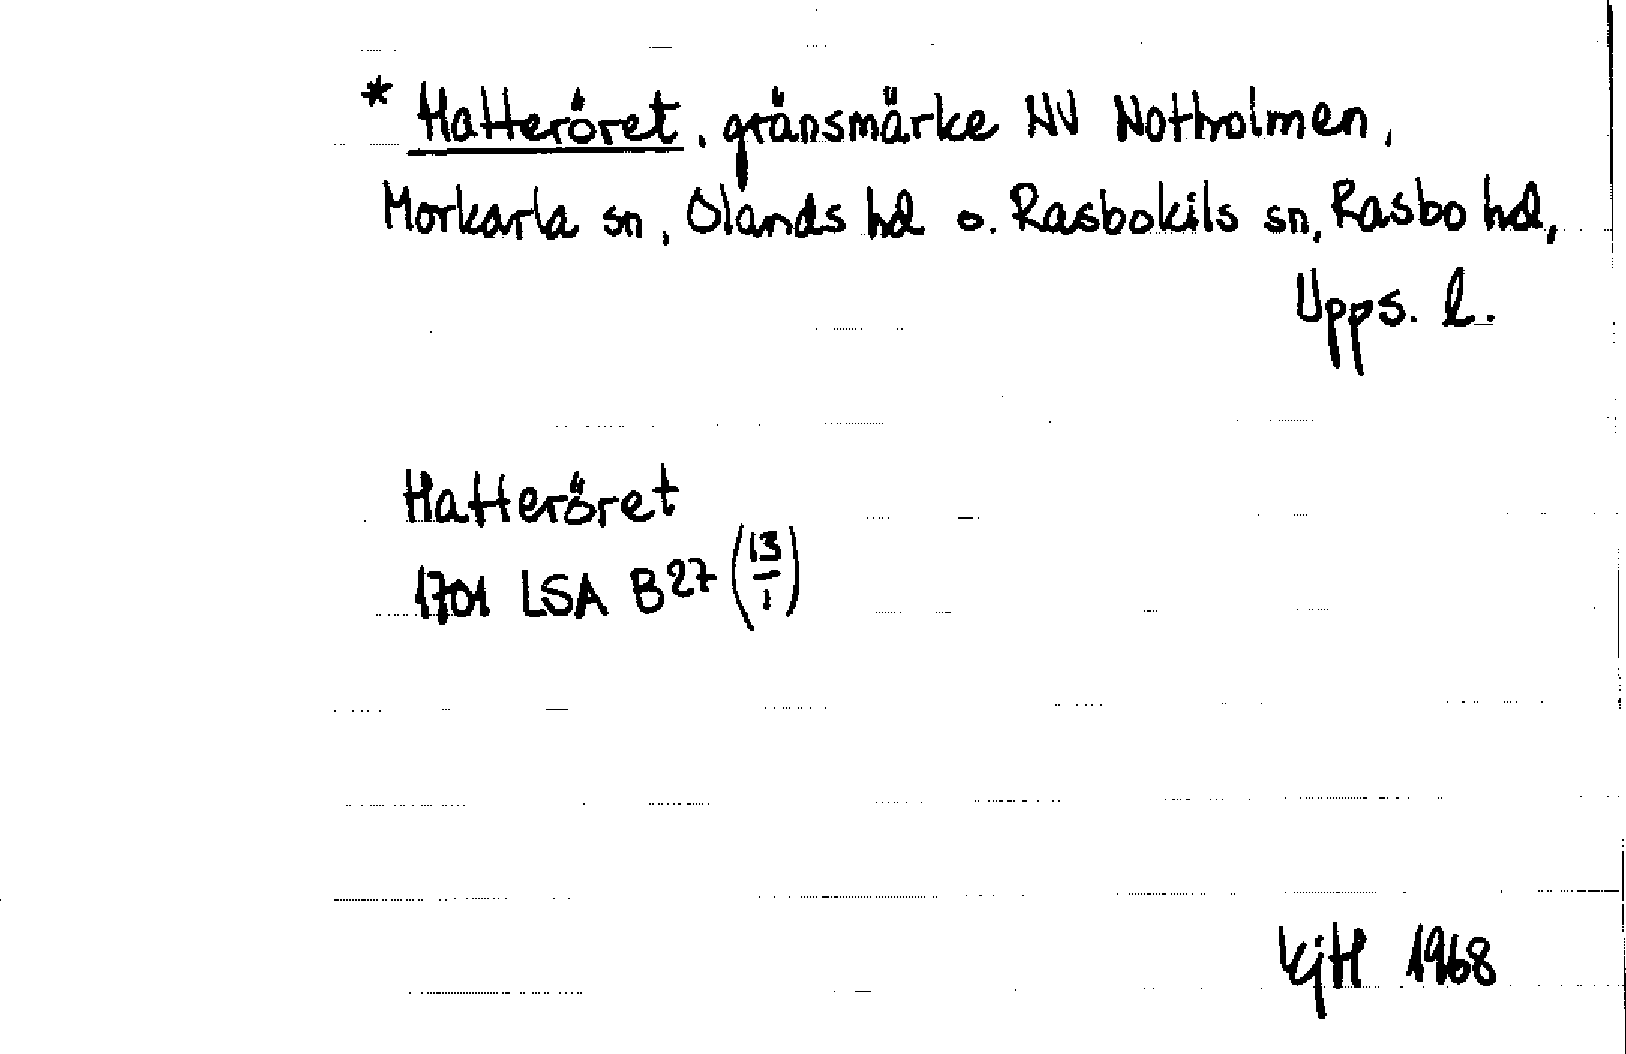 * Hatteröret, gränsmärke NV Notholmen,
Morkarla sn, Olands hd o. Rasbokils sn, Rasbo hd,
Upps. l.
Hatteröret
1701 LSA B27 (13/1)
KjH 1968